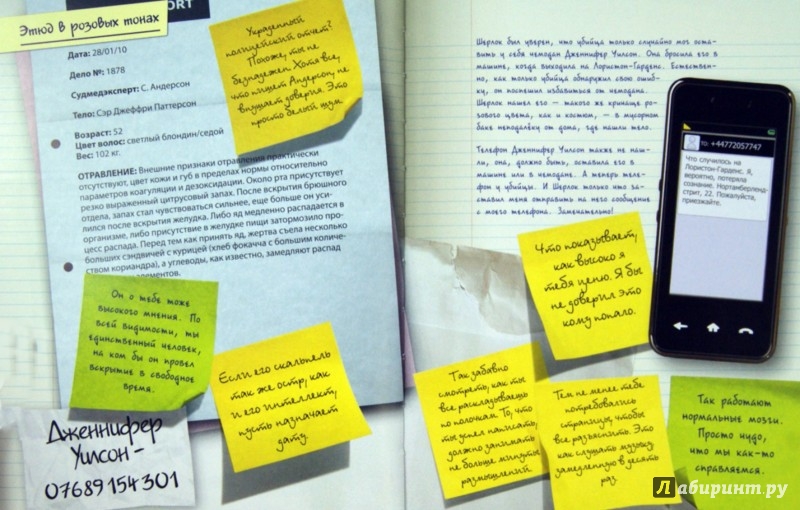 Этюд в розовых тонах
ORT
Дата: 28/01/10
Дело №: 1878
Судмедэксперт: С. Андерсон
Тело: Сэр Джеффри Паттерсон
Возраст: 52
Цвет волос: светлый блондин/седой
Вес: 102 кг.
ОТРАВЛЕНИЕ: Внешние признаки отравления практически
отсутствуют, цвет кожи и губ в пределах нормы относительно
параметров коагуляции и дезоксидации. Около рта присутствует
резко выраженный цитрусовый запах. После вскрытия брюшного
отдела, запах стал чувствоваться сильнее, еще больше он уси-
лился после вскрытия желудка. Либо яд медленно распадается в
организме, либо присутствие в желудке пищи затормозило про-
цесс распада. Перед тем как принять яд, жертва съела несколько
больших сэндвичей с курицей (хлеб фокачча с большим количе-
ством кориандра), а углеводы, как известно, замедляют распад
элементов.
Украденный
полицейский отчет?
Похоже, ты не
безнадежен. Хотя все,
что пишет Андерсон, не
внушает доверия. Это
просто белый шум.
Он о тебе тоже
высокого мнения. По
всей видимости, ты
единственный человек,
на ком бы он провел
вскрытие в свободное
время.
Если его скальпель
так же остр, как
и его интеллект,
пусть назначает
дату.
Дженнифер
Уилсон -
07689 154 301
Шерлок был уверен, что убийца только случайно мог оста-
вить у себя чемодан Дженнифер Уилсон. Она бросила его в
машине, когда выходила на Лористон-Гарденс. Естествен-
но, как только убийца обнаружил свою ошиб-
ку, он поспешил избавиться от чемодана.
Шерлок нашел его — такого же кричаще ро-
зового цвета, как и костюм, — в мусорном
баке неподалёку от дома, где нашли тело.
Телефон Дженнифер Уилсон также не наш-
ли, она, должно быть, оставила его в
машине или в чемодане. А теперь теле-
фон у убийцы. И Шерлок только что за-
ставил меня отправить на него сообщение
с моего телефона. Замечательно!
TO: +44772057747
Что случилось на
Лористон-Гарденс. Я,
вероятно, потеряла
сознание. Нортамберленд-
стрит, 22. Пожалуйста,
приезжайте.
Что показывает,
как высоко я
тебя ценю. Я бы
не доверил это
кому попало.
Так забавно
смотреть, как ты
все раскладываешь
по полочкам. То, что
ты успел написать,
должно занимать
не больше минуты
размышлений.
Тем не менее тебе
потребовались
страницы, чтобы
все разъяснить. Это
как слушать музыку,
замедленную в десять
раз.
Так работают
нормальные мозги.
Просто чудо,
что мы как-то
справляемся.
Лабиринт.ру